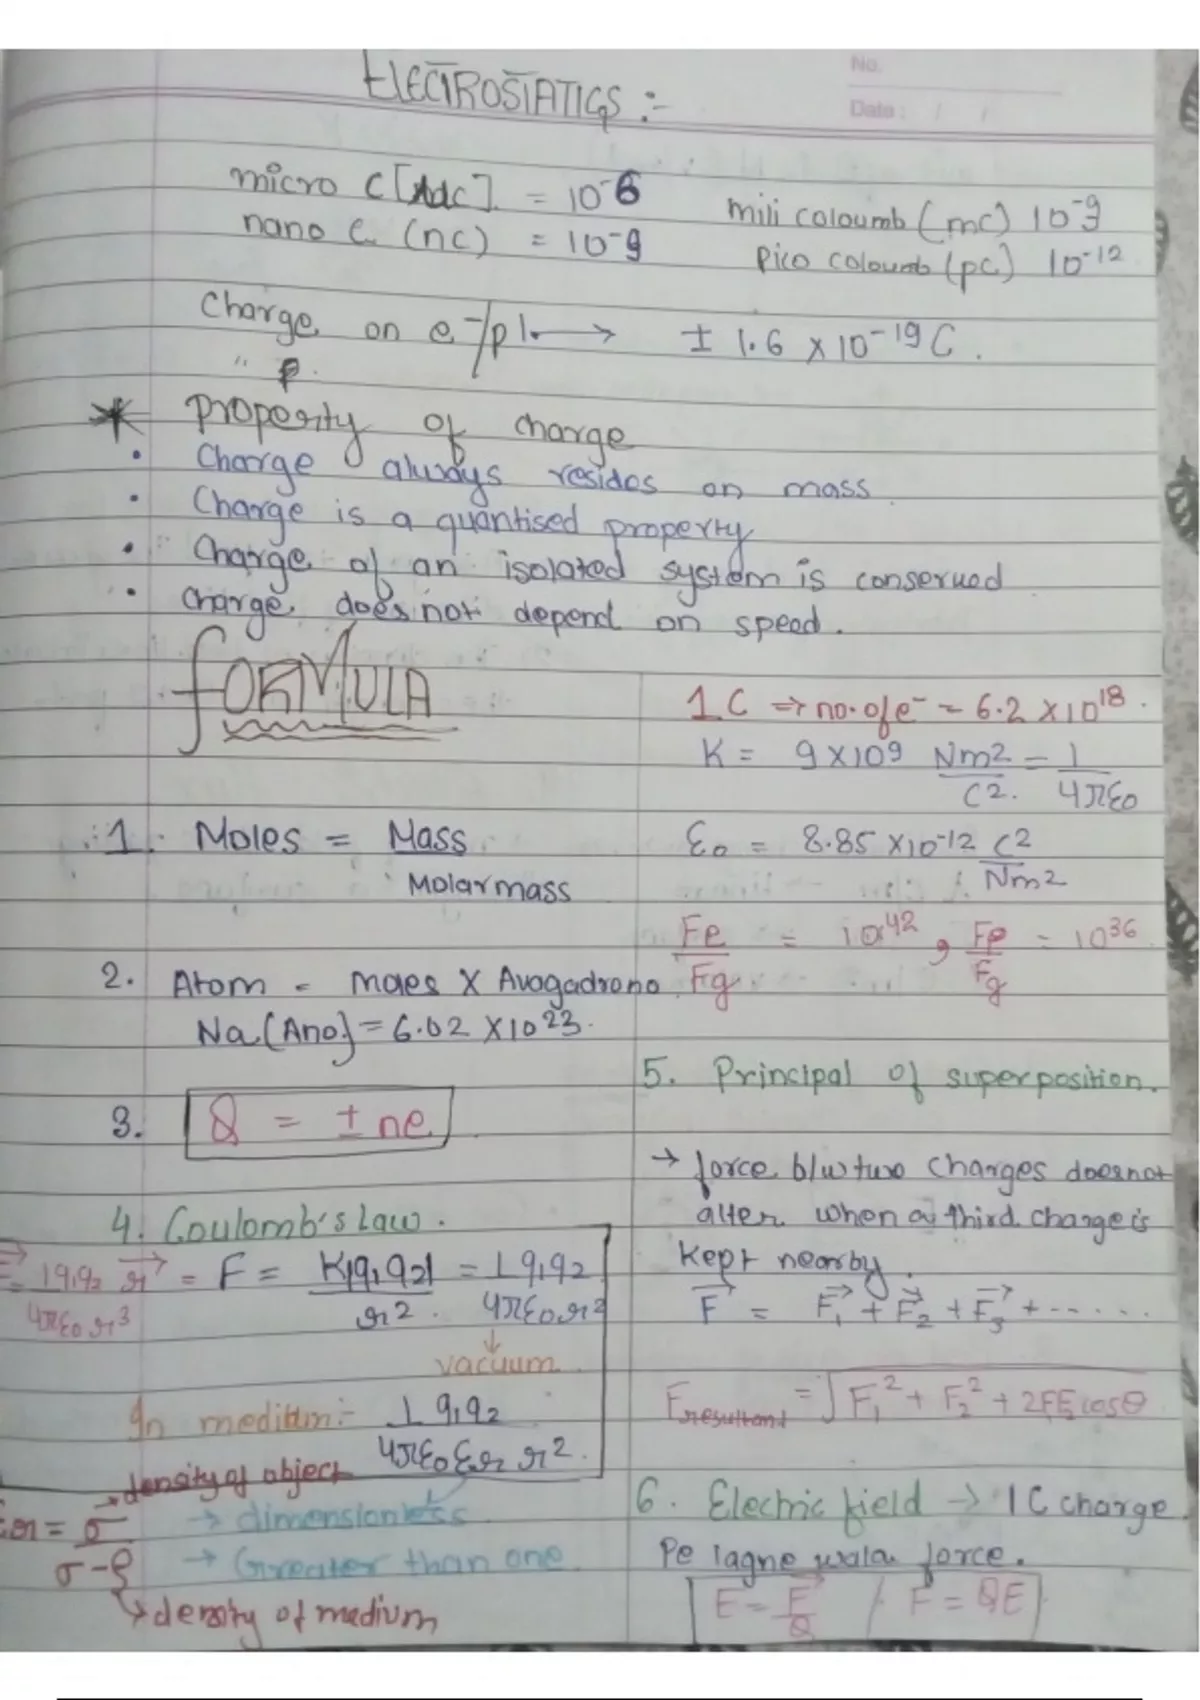 ELECTROSTATICS :-
No.
Date : / /
micro C [ ] = 10⁻⁶
mili coloumb (mc) 10⁻⁹
nano C (nc) = 10⁻⁹
Pico coloumb (pc) 10⁻¹²
Charge on e⁻/p → ± 1.6 × 10⁻¹⁹ C.
" p.
* Property of charge
• Charge always resides on mass.
• Charge is a quantised property
• Charge of an isolated system is conserved
• Charge does not depend on speed.
FORMULA
1. Moles = Mass
Molar mass
2. Atom = moles × Avogadro no
Na (Ano) = 6.02 × 10²³.
3. Q = ± ne
4. Coulomb's Law.
F⃗ = 1 q₁q₂ r⃗ = F = K|q₁q₂| = 1 q₁q₂
4πε₀ r³ r² . 4πε₀ r²
↓
vacuum
In medium:- 1 q₁q₂
4πε₀ εr r².
→ density of object
εr = σ → dimensionless
σ-ρ → Greater than one
↳ density of medium
1 C ⇒ no. of e⁻ = 6.2 × 10¹⁸.
K = 9 × 10⁹ Nm² = 1
C². 4πε₀
ε₀ = 8.85 × 10⁻¹² C²
Nm²
Fe = 10⁴² , Fe = 10³⁶
Fg Fg
5. Principal of superposition.
→ force b/w two charges does not
alter when a third charge is
kept nearby.
F⃗ = F⃗₁ + F⃗₂ + F⃗₃ + ------
Fresultant = √F₁² + F₂² + 2F₁F₂ cosθ
6. Electric field → 1 C charge
Pe lagne wala force.
E = F⃗ / F = QE
Q